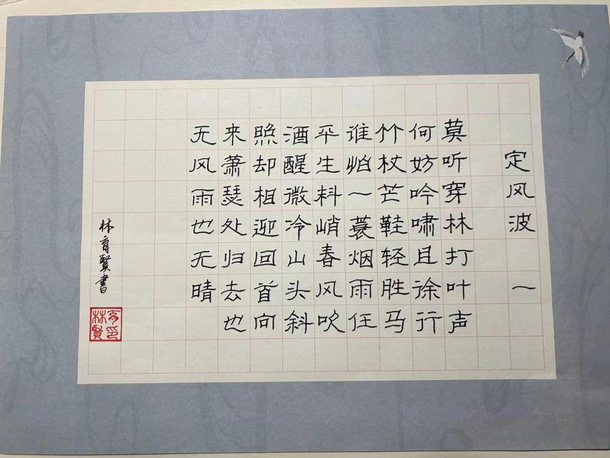 定风波 一
莫听穿林打叶声
何妨吟啸且徐行
竹杖芒鞋轻胜马
谁怕一蓑烟雨任
平生料峭春风吹
酒醒微冷山头斜
照却相迎回首向
来萧瑟处归去也
无风雨也无晴
林育賢書
育印
林賢